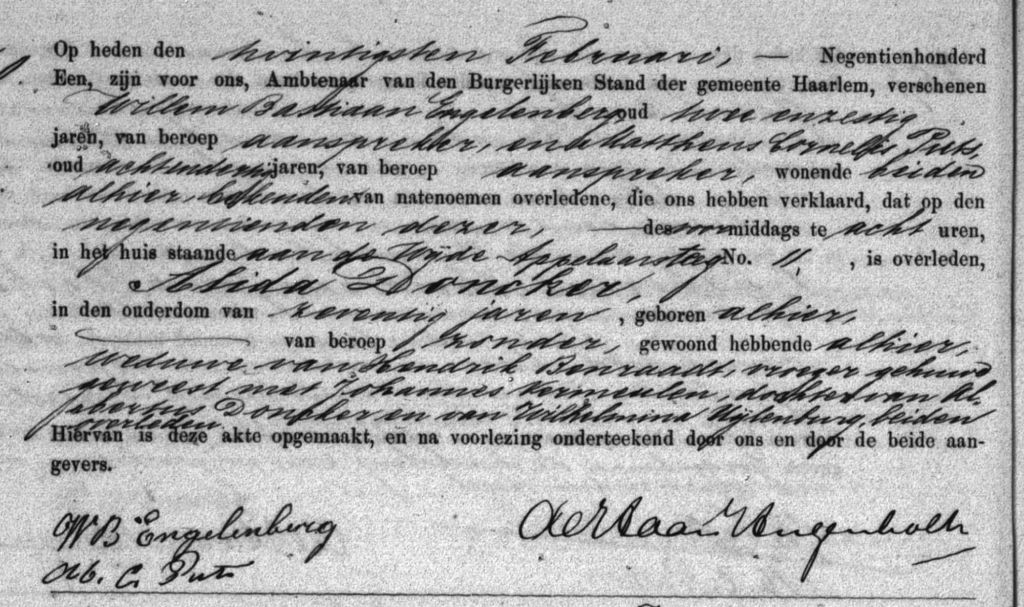 Op heden den twintigsten Februari, — Negentienhonderd
Een, zijn voor ons, Ambtenaar van den Burgerlijken Stand der gemeente Haarlem, verschenen
Willem Bastiaan Engelenberg oud twee enzestig
jaren, van beroep aanspreker, en Mattheus Cornelis Puts,
oud achtendertig jaren, van beroep aanspreker, wonende beiden
alhier, bekenden van natenoemen overledene, die ons hebben verklaard, dat op den
negentienden dezer, — des voormiddags te acht uren,
in het huis staande aan de Wijde Appelaarsteeg No. 11, , is overleden,
Alida Doncker,
in den ouderdom van zeventig jaren , geboren alhier,
van beroep zonder, gewoond hebbende alhier,
weduwe van Hendrik Bonraadt, vroeger gehuwd
geweest met Johannes Vermeulen, dochter van Al
bertus Doncker en van Wilhelmina Uijlenburg, beiden
overleden
Hiervan is deze akte opgemaakt, en na voorlezing onderteekend door ons en door de beide aan-
gevers.
WB Engelenberg
de Haan Hugenholtz
M. C. Puts